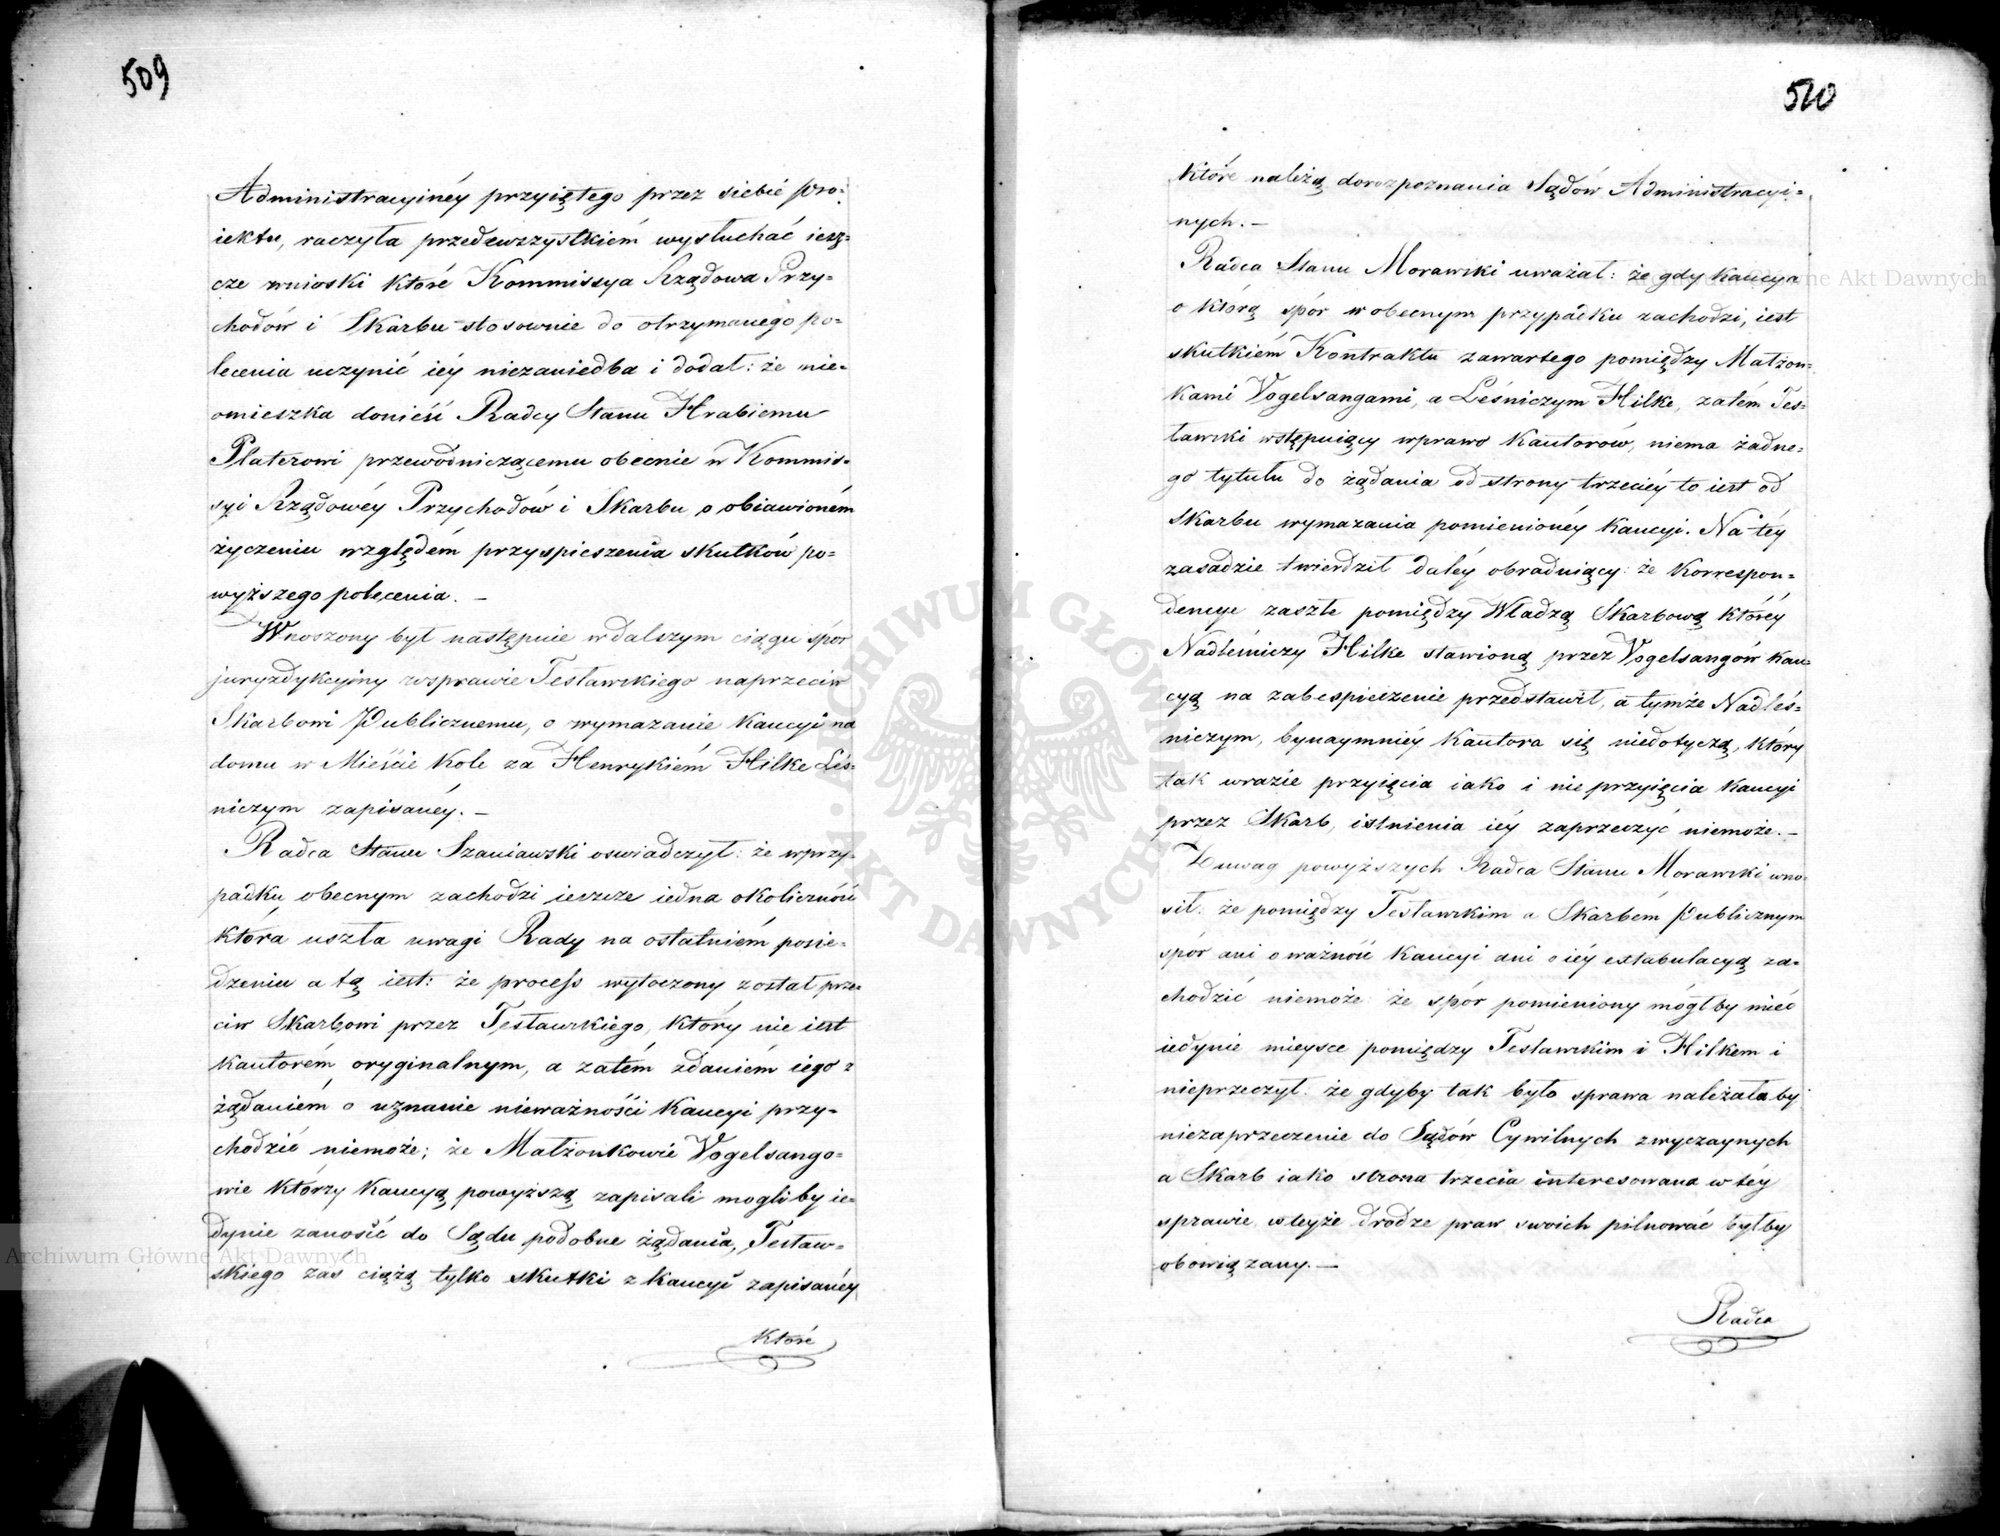 509
Administracyinéy przyiętego przez siebié pro-
iektu, raczyła przedewszystkiém wysłuchać iesz-
cze wnioski któré Kommissya Rządowa Przy-
chodów i Skarbu stosownie do otrzymanego po-
lecenia uczynić iéy niezaniedba i dodał: że nie-
omieszka donieść Radcy Stanu Hrabiemu
Platerowi przewodniczącemu obecnie w Kommis-
syi Rządowéy Przychodów i Skarbu o obiawioném
życzeniu względém przyspieszenia skutków po-
wyższego polecenia. —
Wnoszony był następnie w dalszym ciągu spór
juryzdykcyiny w sprawie Testawskiego naprzeciw
Skarbowi Publicznemu, o wymazanie Kaucyi na
domu w Mieście Kole za Henrykiém Hilke Leś-
niczym zapisanéy. —
Radca Stanu Szaniawski oswiadczył: że w przy-
padku obecnym zachodzi ieszcze iedna okoliczność
która uszła uwagi Rady na ostatniém posie-
dzeniu a tą iest: że process wytoczony został prze-
ciw Skarbowi przez Testawskiego, który nie iest
kautorém oryginalnym, a zatém zdaniém iego z
żądaniém o uznanie nieważności Kaucyi przy-
chodzić niemoże; że Małżonkowie Vogelsango-
wie którzy Kaucyą powyższą zapisali mogliby ie-
dynie zanosić do Sądu podobne żądania, Testaw-
skiego zas ciążą tylko skutki z kaucyi zapisanéy
któré
510
któré należą do rozpoznania Sądów Administracyi-
nych. —
Radca Stanu Morawski uważał: że gdy kaucya
o którą spór w obecnym przypadku zachodzi, iest
skutkiém Kontraktu zawartego pomiędzy Małżon-
kami Vogelsangami, a Leśniczym Hilke, zatém Tes-
tawski wstępuiący w prawo Kautorów, niema żadne-
go tytułu do żądania od strony trzeciéy to iest od
Skarbu wymazania pomienionéy Kaucyi. Na téy
zasadzie twierdził daléy obraduiący: że Korrespon-
dencye zaszłe pomiędzy Władzą Skarbową któréy
Nadleśniczy Hilke stawioną przez Vogelsangów kau-
cyą na zabespieczenie przedstawił, a tymże Nadleś-
niczym, bynaymniéy Kautora się niedotyczą, który
tak w razie przyięcia iako i nie przyięcia Kaucyi
przez Skarb, istnienia iéy zaprzeczyć niemoże. —
Z uwag powyższych Radca Stanu Morawski wno-
sił: że pomiędzy Testawskim a Skarbém Publicznym
spór ani o ważność Kaucyi ani o iéy extabulacyą za-
chodzić niemoże że spór pomieniony mógłby mieć
iedynie mieysce pomiędzy Testawskim i Hilkem i
nieprzeczył: że gdyby tak było sprawa należałaby
niezaprzeczenie do Sądów Cywilnych zwyczaynych
a Skarb iako strona trzecia interesowana w téy
sprawie w teyże drodze praw swoich pilnować byłby
obowiązany. —
Radca
Archiwum Główne Akt Dawnych